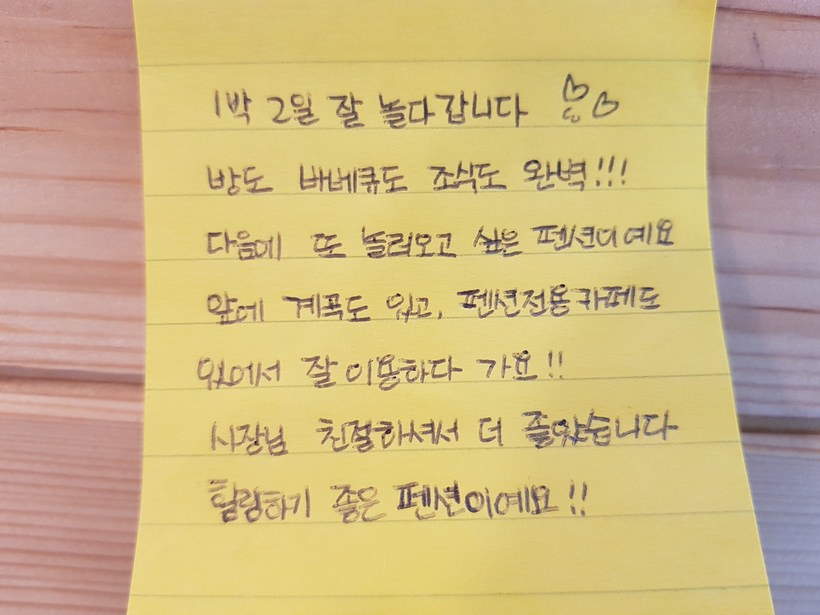 1박 2일 잘 놀다갑니다
방도 바베큐도 조식도 완벽!!!
다음에 또 놀러오고 싶은 펜션이예요
앞에 계곡도 있고, 펜션전용카페도
있어서 잘 이용하다 가요!!
사장님 친절하셔서 더 좋았습니다
힐링하기 좋은 펜션이예요!!